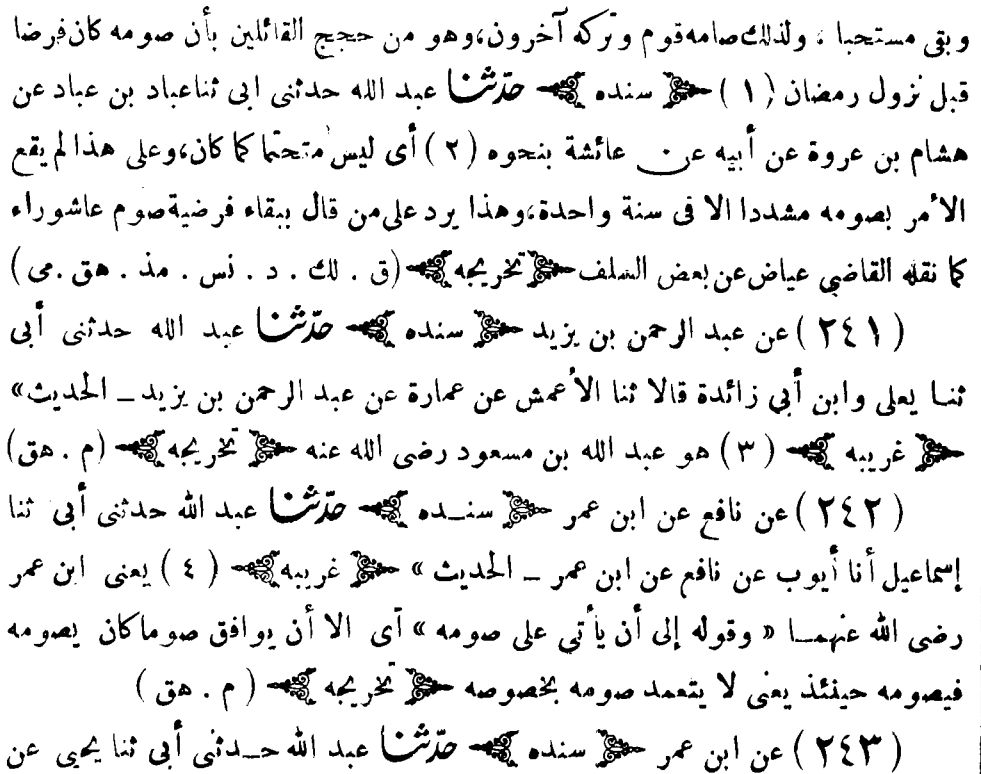 وبقى مستحبا ، ولذلك صامه قوم وتركه آخرون،وهو من حجج القائلين بأن صومه كان فرضا
قبل نزول رمضان ( ١ ) سنده حدّثنا عبد الله حدثنى ابى ثنا عباد بن عباد عن
هشام بن عروة عن أبيه عن عائشة بنحوه ( ٢ ) أى ليس متحتما كما كان،وعلى هذا لم يقع
الأمر بصومه مشددا الا فى سنة واحدة،وهذا يرد على من قال ببقاء فرضية صوم عاشوراء
كما نقله القاضى عياض عن بعض السلف تخريجه (ق . لك . د . نس . مذ . هق .مى )
( ٢٤١ ) عن عبد الرحمن بن يزيد سنده حدّثنا عبد الله حدثنى أبى
ثنا يعلى وابن أبي زائدة قالا ثنا الأعمش عن عمارة عن عبد الرحمن بن يزيد ــ الحديث»
غريبه ( ٣ ) هو عبد الله بن مسعود رضى الله عنه تخريجه (م . هق)
( ٢٤٢ ) عن نافع عن ابن عمر سنده حدّثنا عبد الله حدثنى أبى ثنا
إسماعيل أنا أيوب عن نافع عن ابن عمر ــ الحديث » غريبه ( ٤ ) يعنى ابن عمر
رضى الله عنهما « وقوله إلى أن يأتى على صومه » آى الا أن يوافق صوما كان يصومه
فيصومه حينئذ يعنى لا يتعمد صومه بخصوصه تخريجه ( م . هق )
( ٢٤٣ ) عن ابن عمر سنده حدّثنا عبد الله حدثنى أبى ثنا يحيى عن